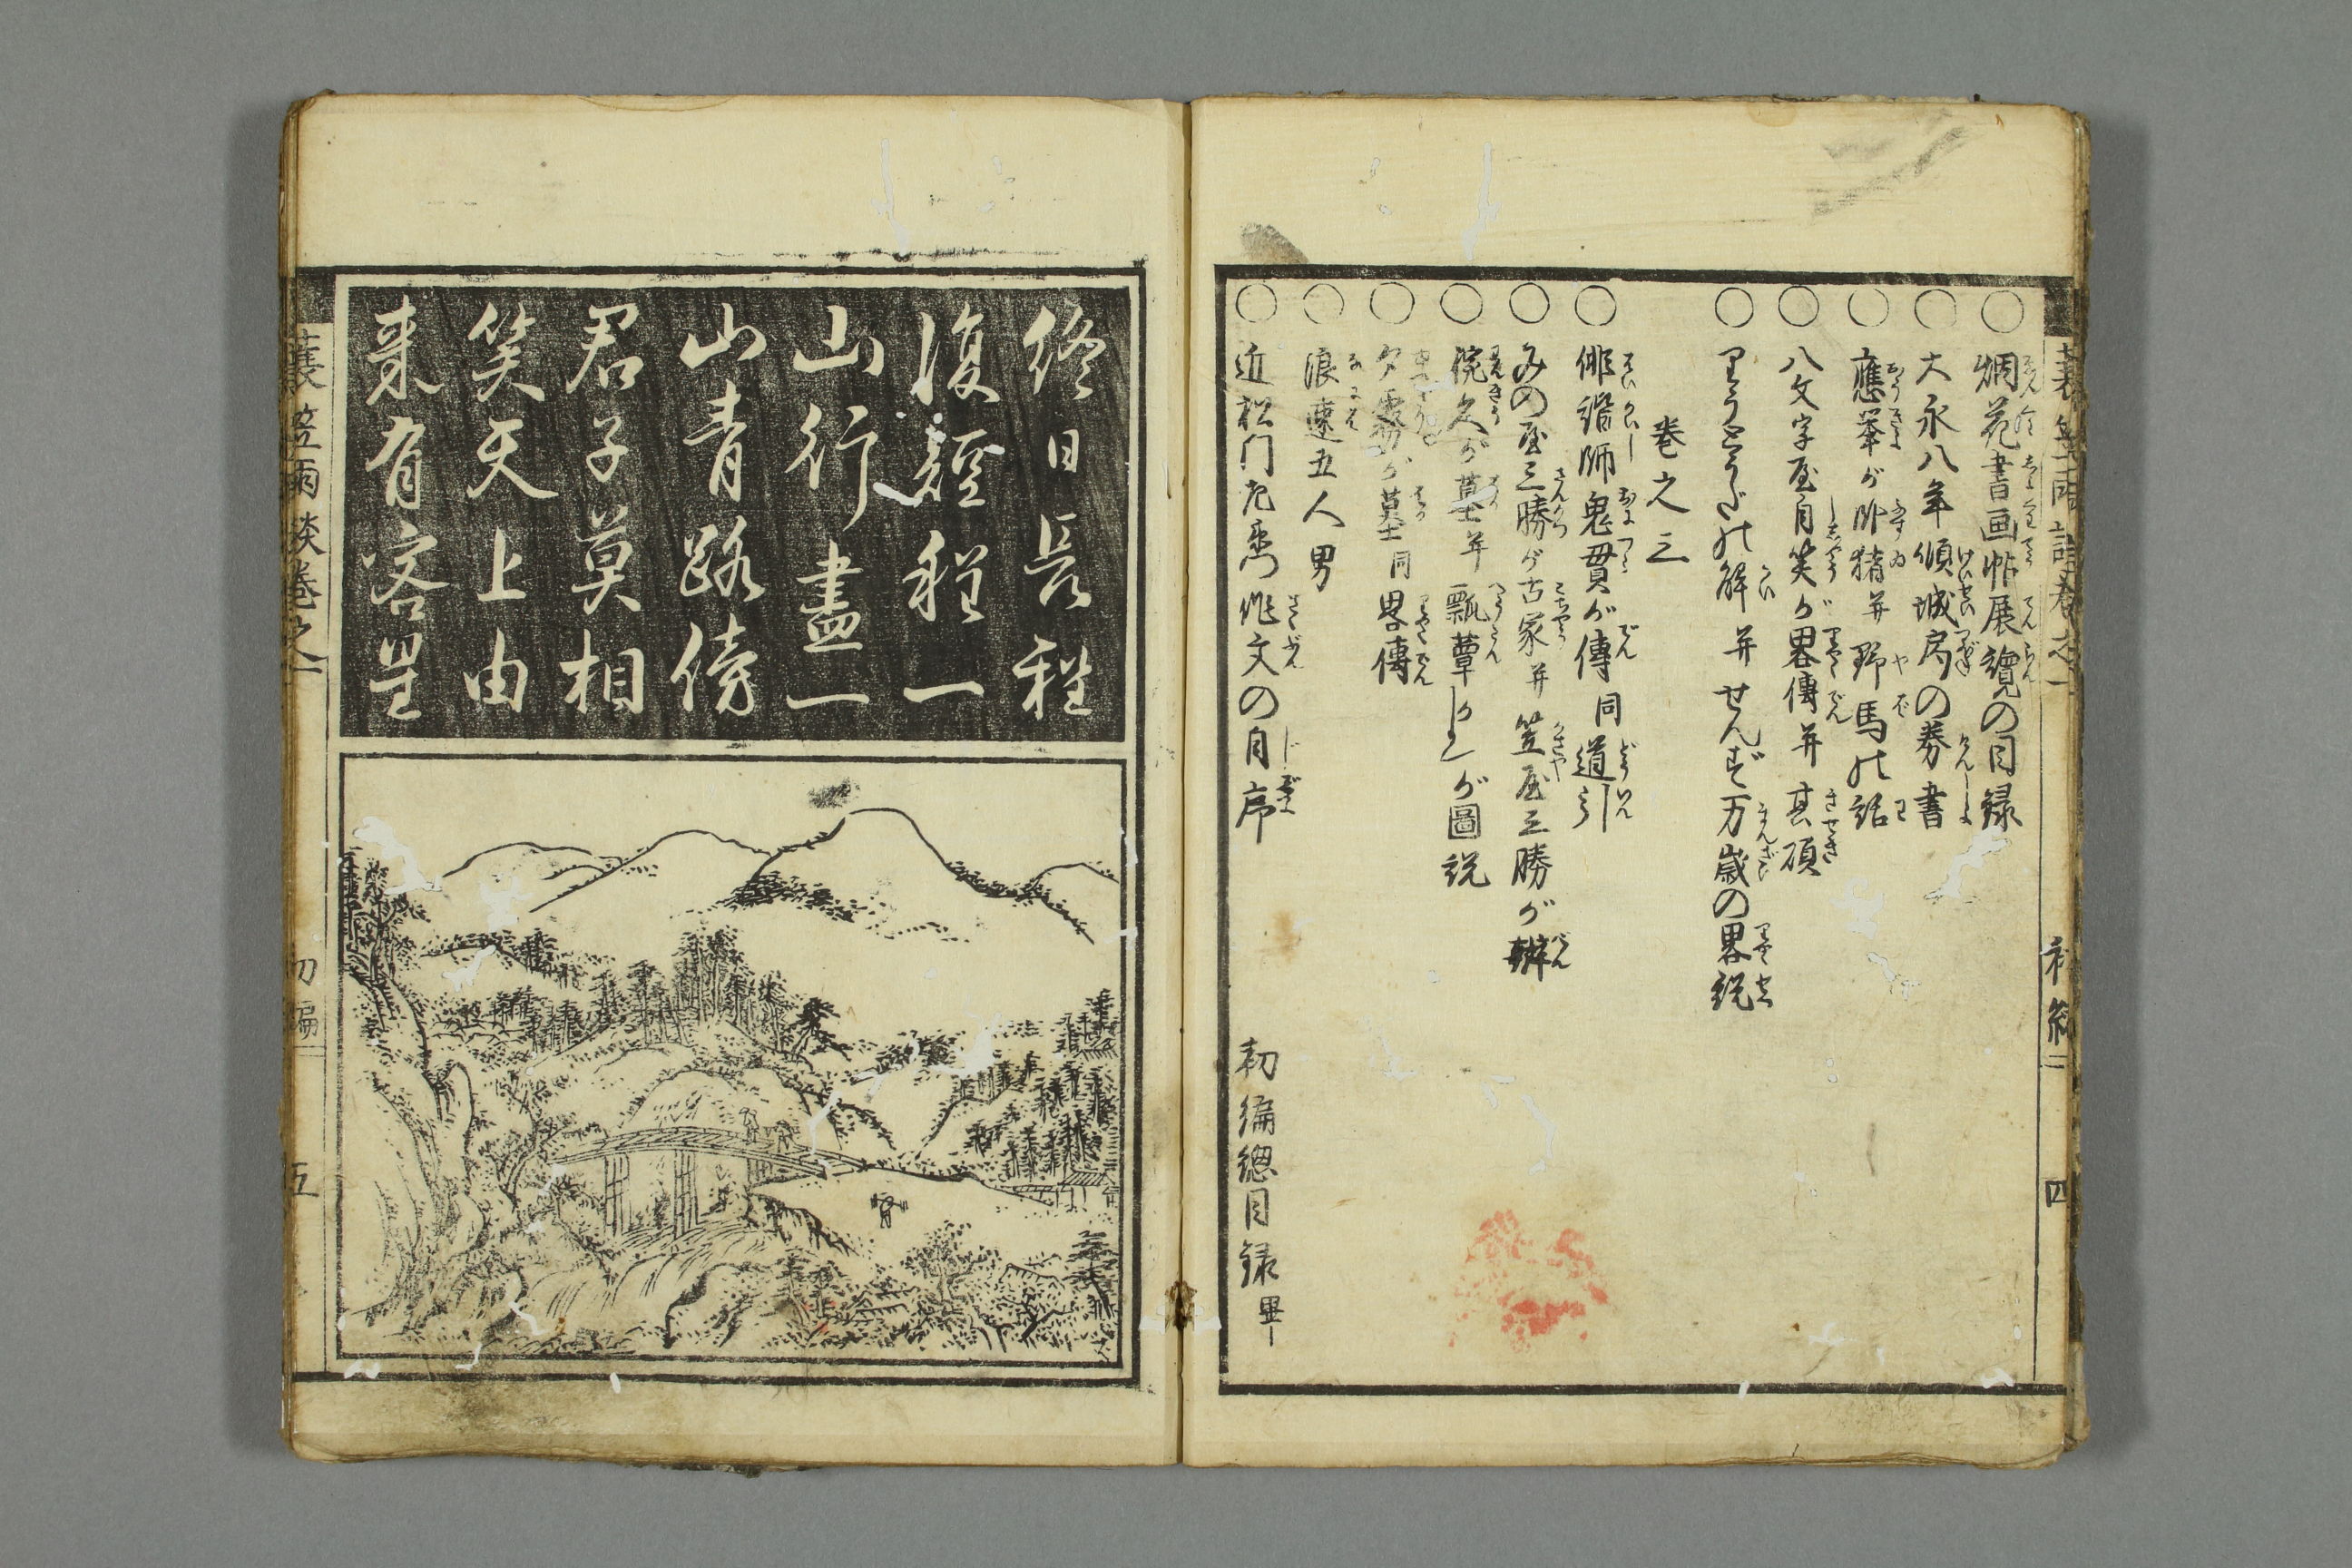 烟花書画帖展覽の目録
大永八年傾城局の券書
應挙が臥猪并野馬の話
八文字屋自笑が畧傳并其磧
りうたつぶしの解并せんず万歳の畧説
巻之三
俳諧師鬼貫が傳同道引
みの屋三勝が古家并笠屋三勝が辨
椀久が墓并瓢箪しかくが圖説
夕霧が墓同畧傳
浪速五人男
近松門左衛門作文の自序
初編總目録畢
四
終日長程
復短程一
山行盡一
山青路傍
君子莫相
笑天上由
来有客星
蓑笠雨談巻之一
初編
五